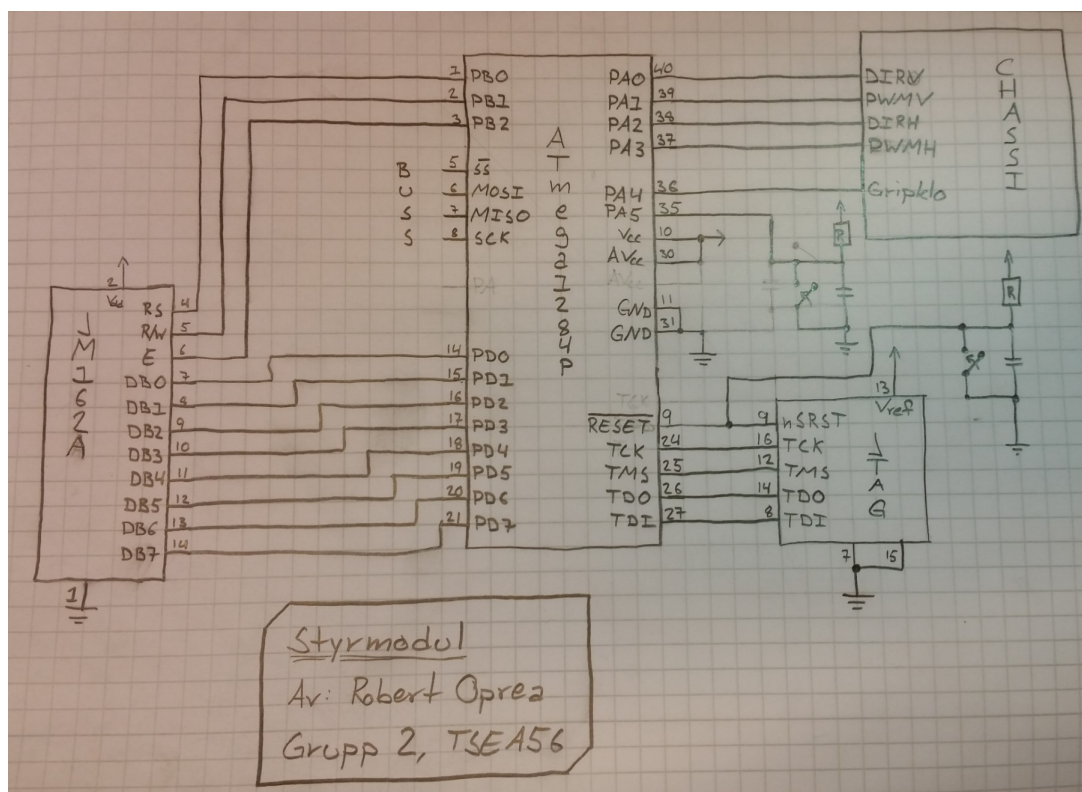 JM162A
2
Vcc
RS 4
R/W 5
E 6
DB0 7
DB1 8
DB2 9
DB3 10
DB4 11
DB5 12
DB6 13
DB7 14
1
BUSS
ATmega1284P
1 PB0
2 PB1
3 PB2
5 S̅S̅
6 MOSI
7 MISO
8 SCK
14 PD0
15 PD1
16 PD2
17 PD3
18 PD4
19 PD5
20 PD6
21 PD7
PA0 40
PA1 39
PA2 38
PA3 37
PA4 36
PA5 35
Vcc 10
AVcc 30
GND 11
GND 31
R̅E̅S̅E̅T̅ 9
TCK 24
TMS 25
TDO 26
TDI 27
CHASSI
DIRV
PWMV
DIRH
PWMH
Gripklo
R
R
JTAG
13
Vref
9 nSRST
16 TCK
12 TMS
14 TDO
8 TDI
7 15
Styrmodul
Av: Robert Oprea
Grupp 2, TSEA56